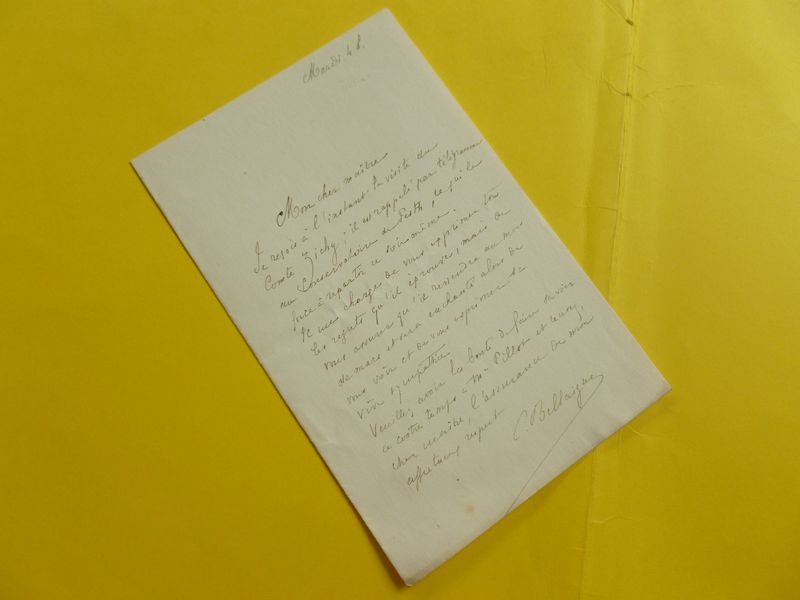 Mardi 4 h.
Mon cher maître
Je reçois à l'instant la visite du
Comte Zichy; il est rappelé par télégramme
au Conservatoire de Pesth, ce qui le
force à repartir ce soir même.
Il me charge de vous exprimer tous
les regrets qu'il éprouve, mais de
vous assurer qu'il reviendra au mois
de mars et sera enchanté alors de
vous voir et de vous exprimer sa
vive sympathie.
Veuillez avoir la bonté de faire savoir
ce contre temps à Mr Pillot et recevez,
cher maître, l'assurance de mon
affectueux respect
C. Bellaigue